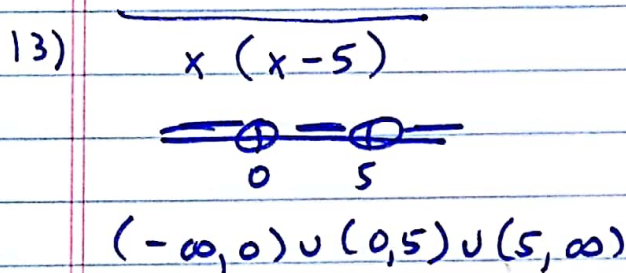 13)
x (x-5)
0 5
(-∞,0)∪(0,5)∪(5,∞)